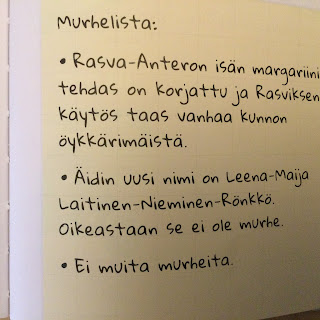 Murhelista:
• Rasva-Anteron isän margariini
tehdas on korjattu ja Rasviksen
käytös taas vanhaa kunnon
öykkärimäistä.
• Äidin uusi nimi on Leena-Maija
Laitinen-Nieminen-Rönkkö.
Oikeastaan se ei ole murhe.
• Ei muita murheita.